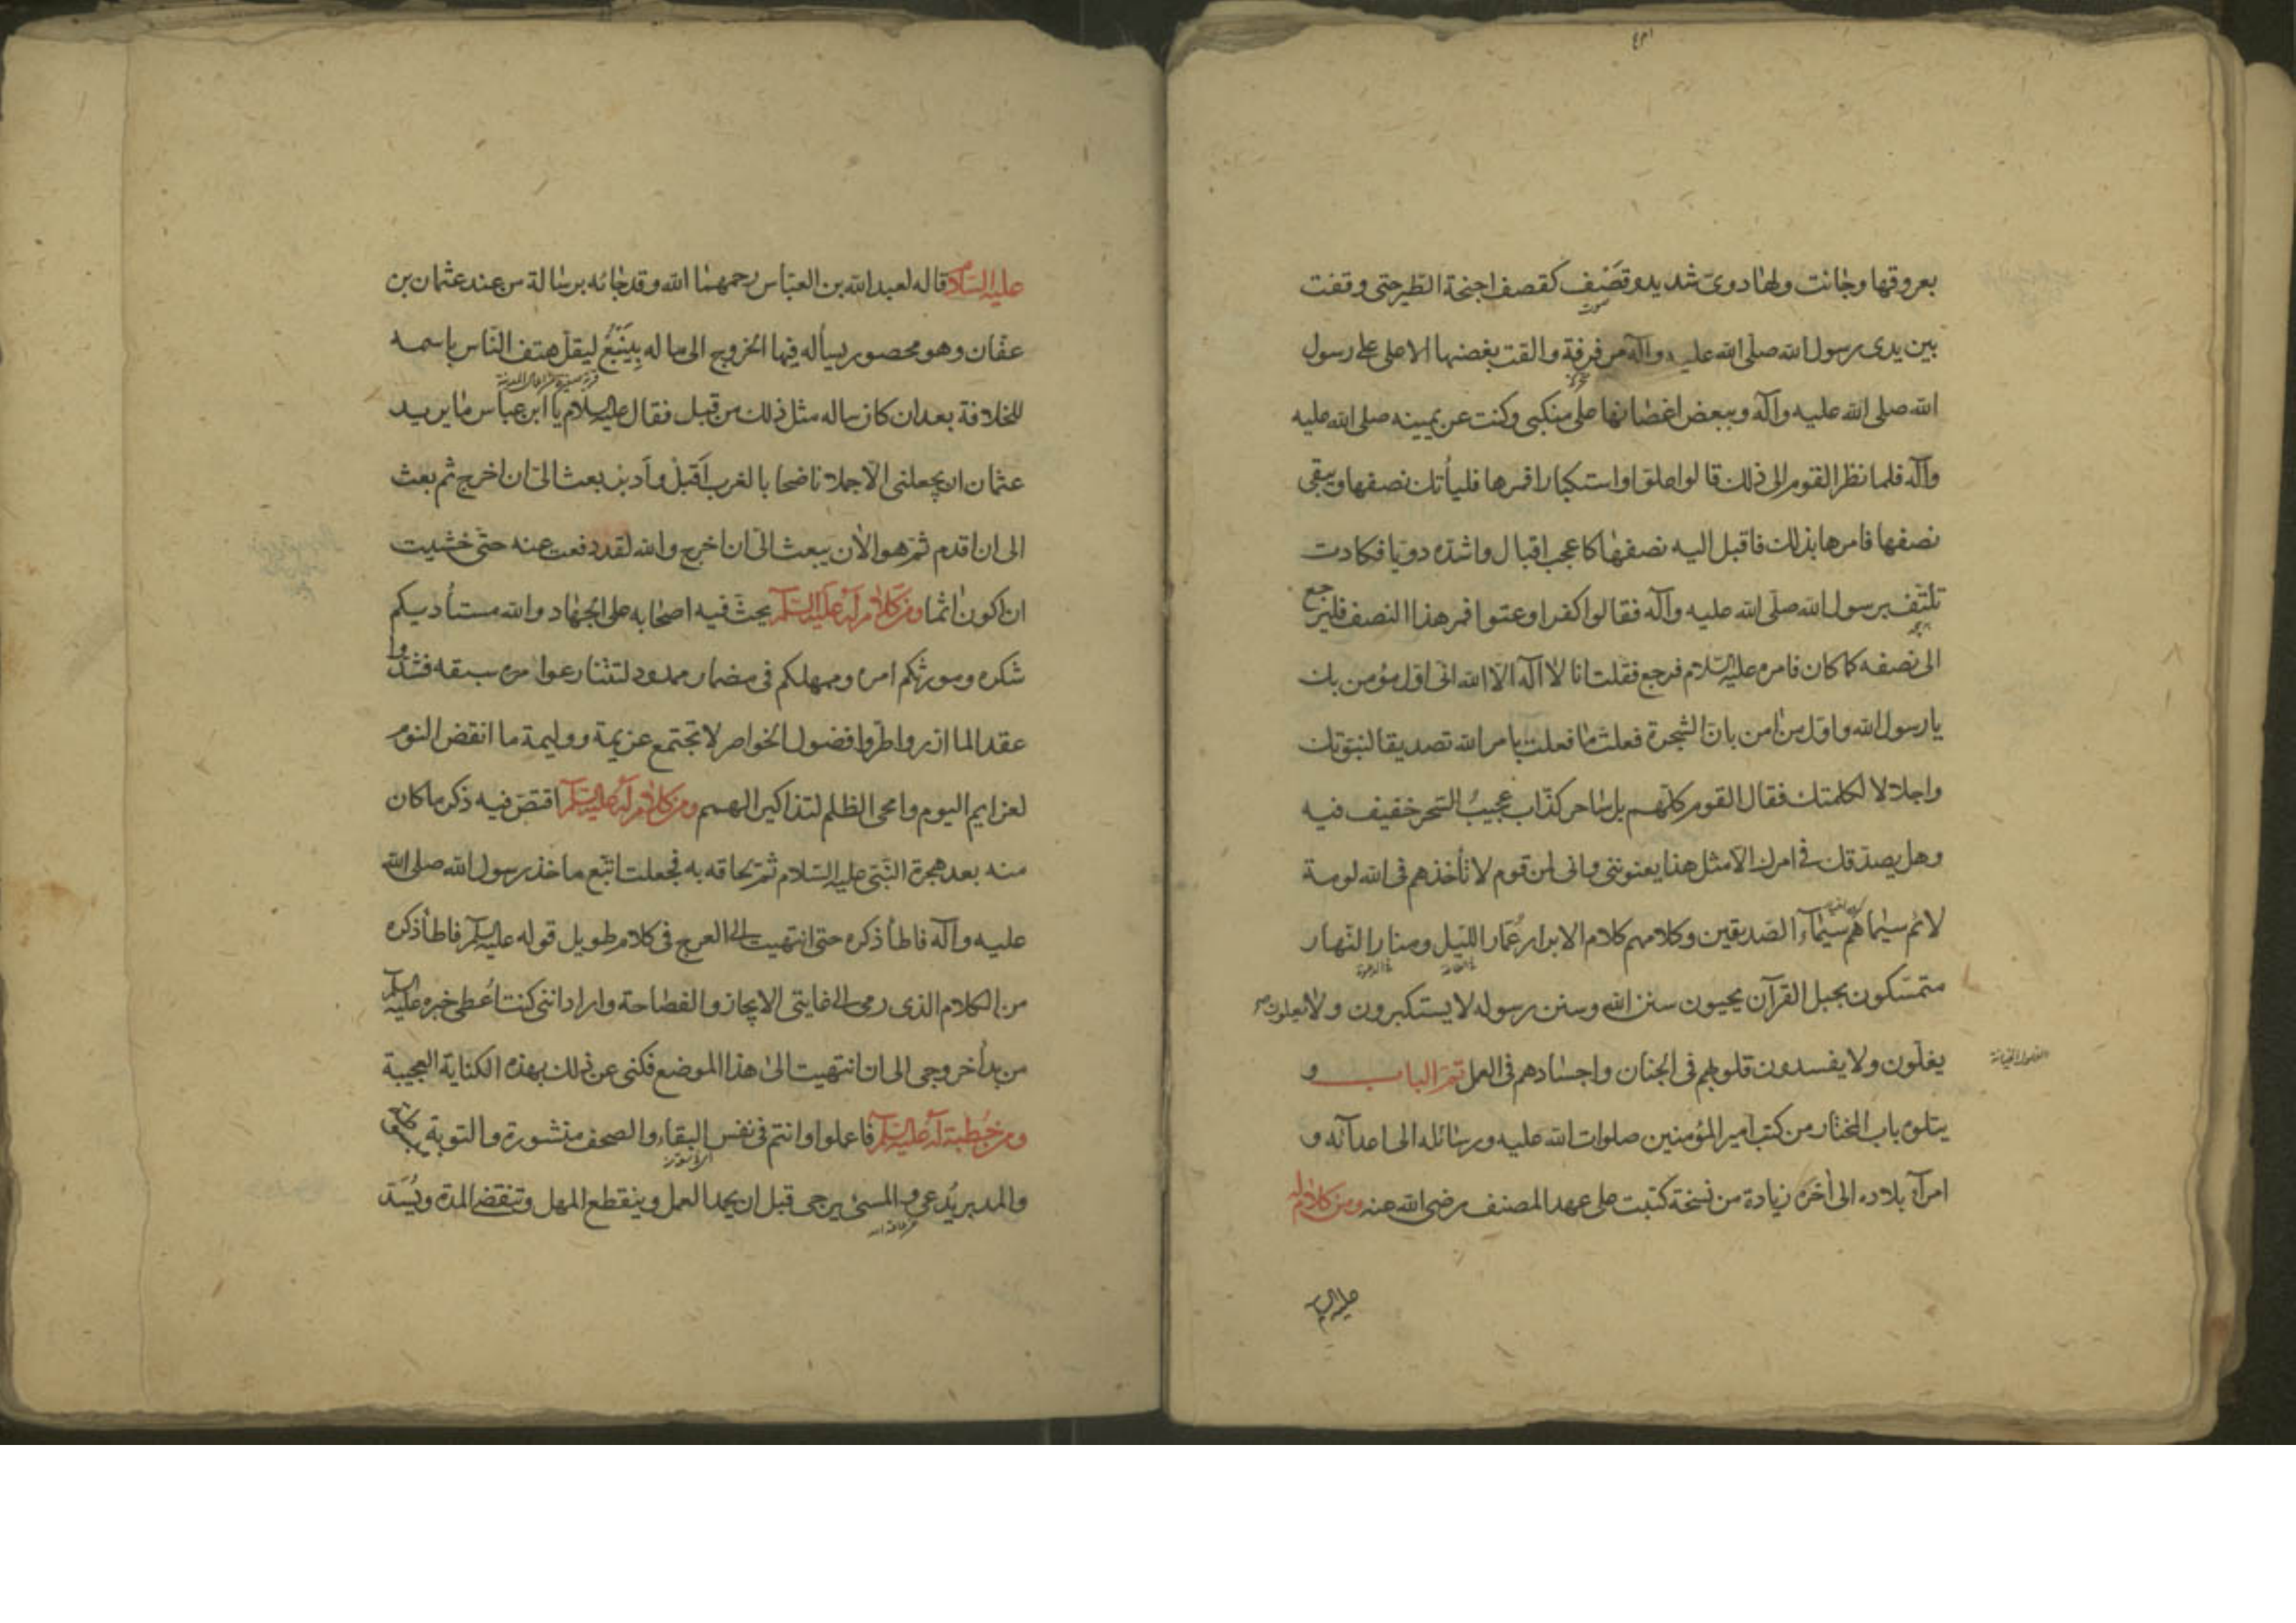 بعروقها وجائت ولها دوى شديد وقصف كقصف اجنحة الطير حتى وقفت
بين يدى رسول الله صلى الله عليه وآله مرفرفة والقت بغصنها الاعلى على رسول
الله صلى الله عليه وآله وببعض اغصانها على منكبى وكنت عن يمينه صلى الله عليه
وآله فلما نظر القوم الى ذلك قالوا علوّا واستكبارا فمرها فليأتك نصفها ويبقى
نصفها فامرها بذلك فاقبل اليه نصفها كاعجب اقبال واشدّه دويّا فكادت
تلتفّ برسول الله صلى الله عليه وآله فقالوا كفرا وعتوا فمر هذا النصف فليرجع
الى نصفه كما كان فامره عليه السلام فرجع فقلت انا لا اله الا الله انى اول مؤمن بك
يا رسول الله واول من امن بان الشجرة فعلت ما فعلت بامر الله تصديقا لنبوتك
واجلالا لكلمتك فقال القوم كلهم بل ساحر كذّاب عجيبُ السحر خفيف فيه
وهل يصدقك فى امرك الا مثل هذا يعنوننى وانى لمن قوم لا تأخذهم فى الله لومة
لائم سيماهم سيماء الصديقين وكلامهم كلام الابرار عُمّار الليل ومنار النهار
متمسّكون بحبل القرآن يحيون سنن الله وسنن رسوله لا يستكبرون ولا يعلون
يغلّون ولا يفسدون قلوبهم فى الجنان واجسادهم فى العمل تمّ الباب و
الغلول الخيانة
يتلوه باب المختار من كتب امير المؤمنين صلوات الله عليه ورسائله الى اعدآئه و
امرآء بلاده الى أخره زيادة من نسخة كتبت على عهد المصنف رضى الله عنه ومن كلام له
عليه السلام
عليه السلام قاله لعبد الله بن العباس رحمهما الله وقد جائه برسالة من عند عثمان بن
عفّان وهو محصور يسأله فيها الخروج الى ماله بِيَنْبُعَ ليقلّ هتف الناس باسمه
للخلافة بعد ان كان ساله مثل ذلك من قبل فقال عليه السلام يا ابن عباس ما يريد
عثمان ان يجعلنى الّا جملا ناضحا بالغرب اَقبل واَدبر بعث الىّ ان اخرج ثم بعث
الى ان اقدم ثم هو الأن يبعث الىّ ان اخرج والله لقد دفعت عنه حتى خشيت
ان اكون اثما ومن كلام له عليه السلام يحثّ فيه اصحابه على الجهاد والله مستأديكم
شكره ومورثكم امره وممهلكم فى مضمار ممدود لتتنازعوا سبقه فشدّوا
عقد الماازر واطووا فضول الخواصر لا تجتمع عزيمة ووليمة ما انقض النوم
لعزايم اليوم وامحى الظلم لتذاكير الهمم ومن كلام له عليه السلام اقتصّ فيه ذكر ما كان
منه بعد هجرة النبى عليه السلام ثمّ لحاقه به فجعلت اتّبع ماخذ رسول الله صلى الله
عليه وآله فاطأ ذكره حتى انتهيت الى العرج فى كلام طويل قوله عليه السلام فاطأ ذكره
من الكلام الذى رمى الى غايتى الايجاز والفصاحة واراد اننى كنت اُعطى خبره عليه السلام
من بدأ خروجى الى ان انتهيت الى هذا الموضع فكنى عن ذلك بهذه الكناية العجيبة
ومن خُطبة له عليه السلام فاعملوا وانتم فى نفس البقاء والصحف منشورة والتوبة
والمدبر يُدعى والمسئ يرجى قبل ان يجمد العمل وينقطع المهل وتنقضى المدة ويُسَدّ